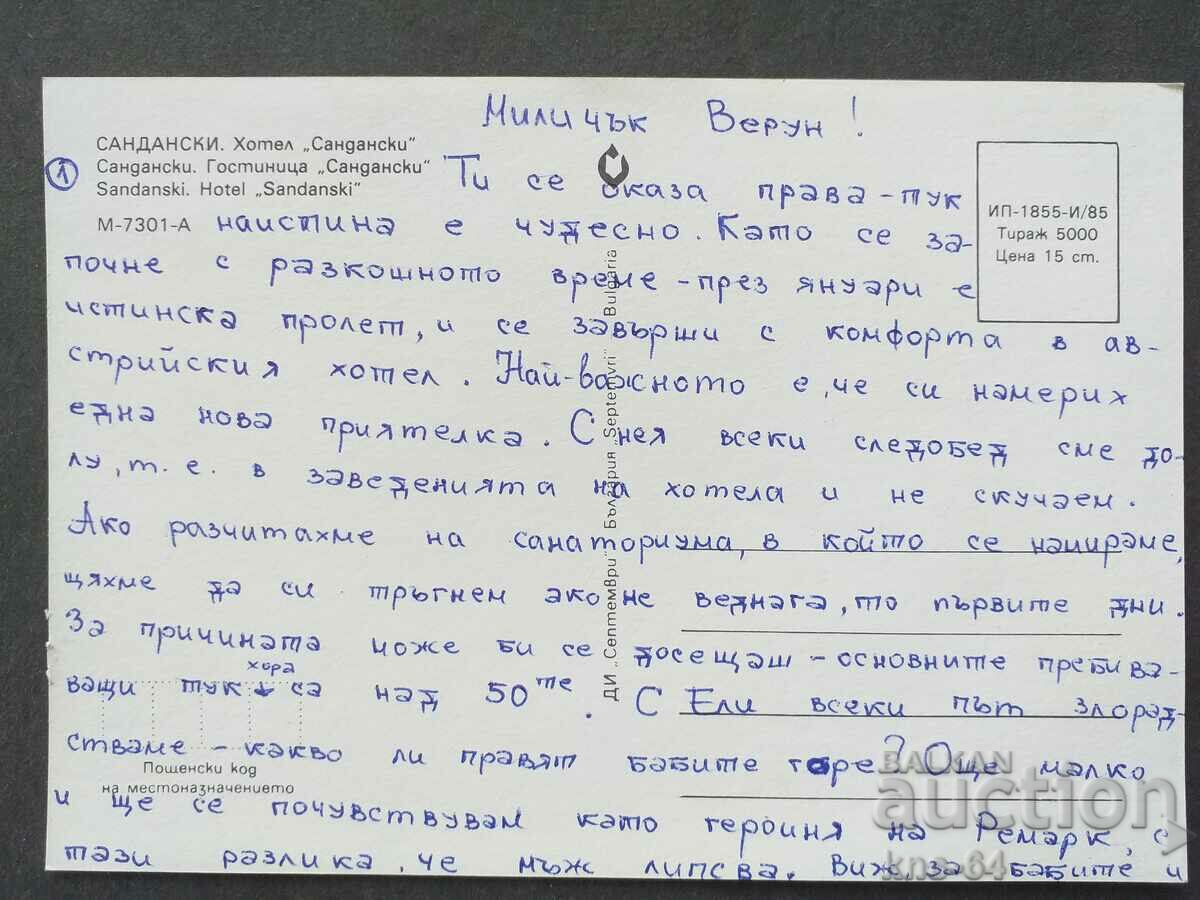 Миличък Верун!
САНДАНСКИ. Хотел „Сандански"
Сандански. Гостиница „Сандански"
Sandanski. Hotel „Sandanski"
М-7301-А
ИП-1855-И/85
Тираж 5000
Цена 15 ст.
1
Ти се оказа права-тук
наистина е чудесно. Като се за-
почне с разкошното време - през януари е
истинска пролет, и се завърши с комфорта в ав-
стрийския хотел. Най-важното е, че си намерих
една нова приятелка. С нея всеки следобед сме до-
лу, т. е. в заведенията на хотела и не скучаем.
Ако разчитахме на санаториума, в който се намираме,
щяхме да си тръгнем ако не веднага, то първите дни.
За причината може би се досещаш - основните пребива-
хора
ващи тук са над 50те. С Ели всеки път злорад-
стваме - какво ли правят бабите горе? Още малко
и ще се почувствувам като героиня на Ремарк, с
тази разлика, че мъж липсва. Виж, за бабите и
ДИ „Септември" България „Septemvri" Bulgaria
Пощенски код
на местоназначението
BALKAN
auction
kns-64